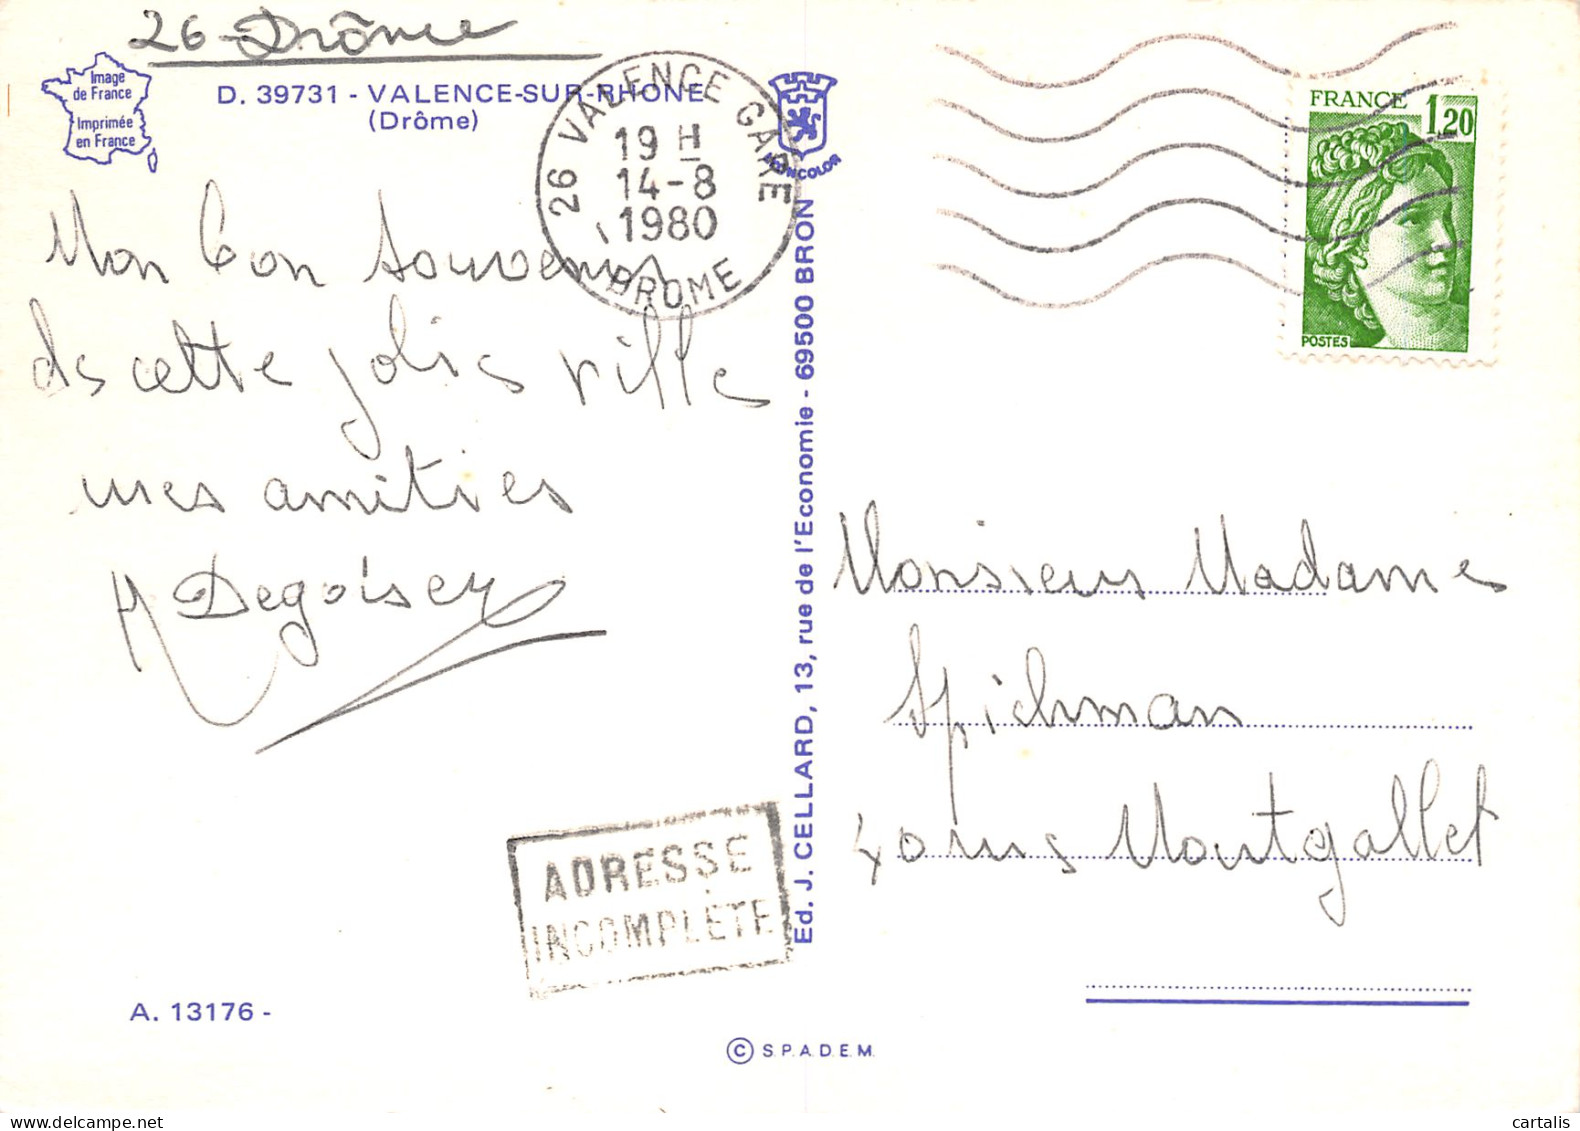 26 Drôme
Image
de France
Imprimée
en France
D. 39731 - VALENCE-SUR-RHONE
(Drôme)
26 VALENCE GARE
19 H
14-8
1980
DROME
FRANCE 1,20
POSTES
Mon bon souvenir
de cette jolie ville
mes amitiés
Degoisey
Monsieur Madame
Spichman
40 rue Montgallet
ADRESSE
INCOMPLÈTE
Ed. J. CELLARD, 13, rue de l'Economie - 69500 BRON
A. 13176 -
© S.P.A.D.E.M.
cartalis